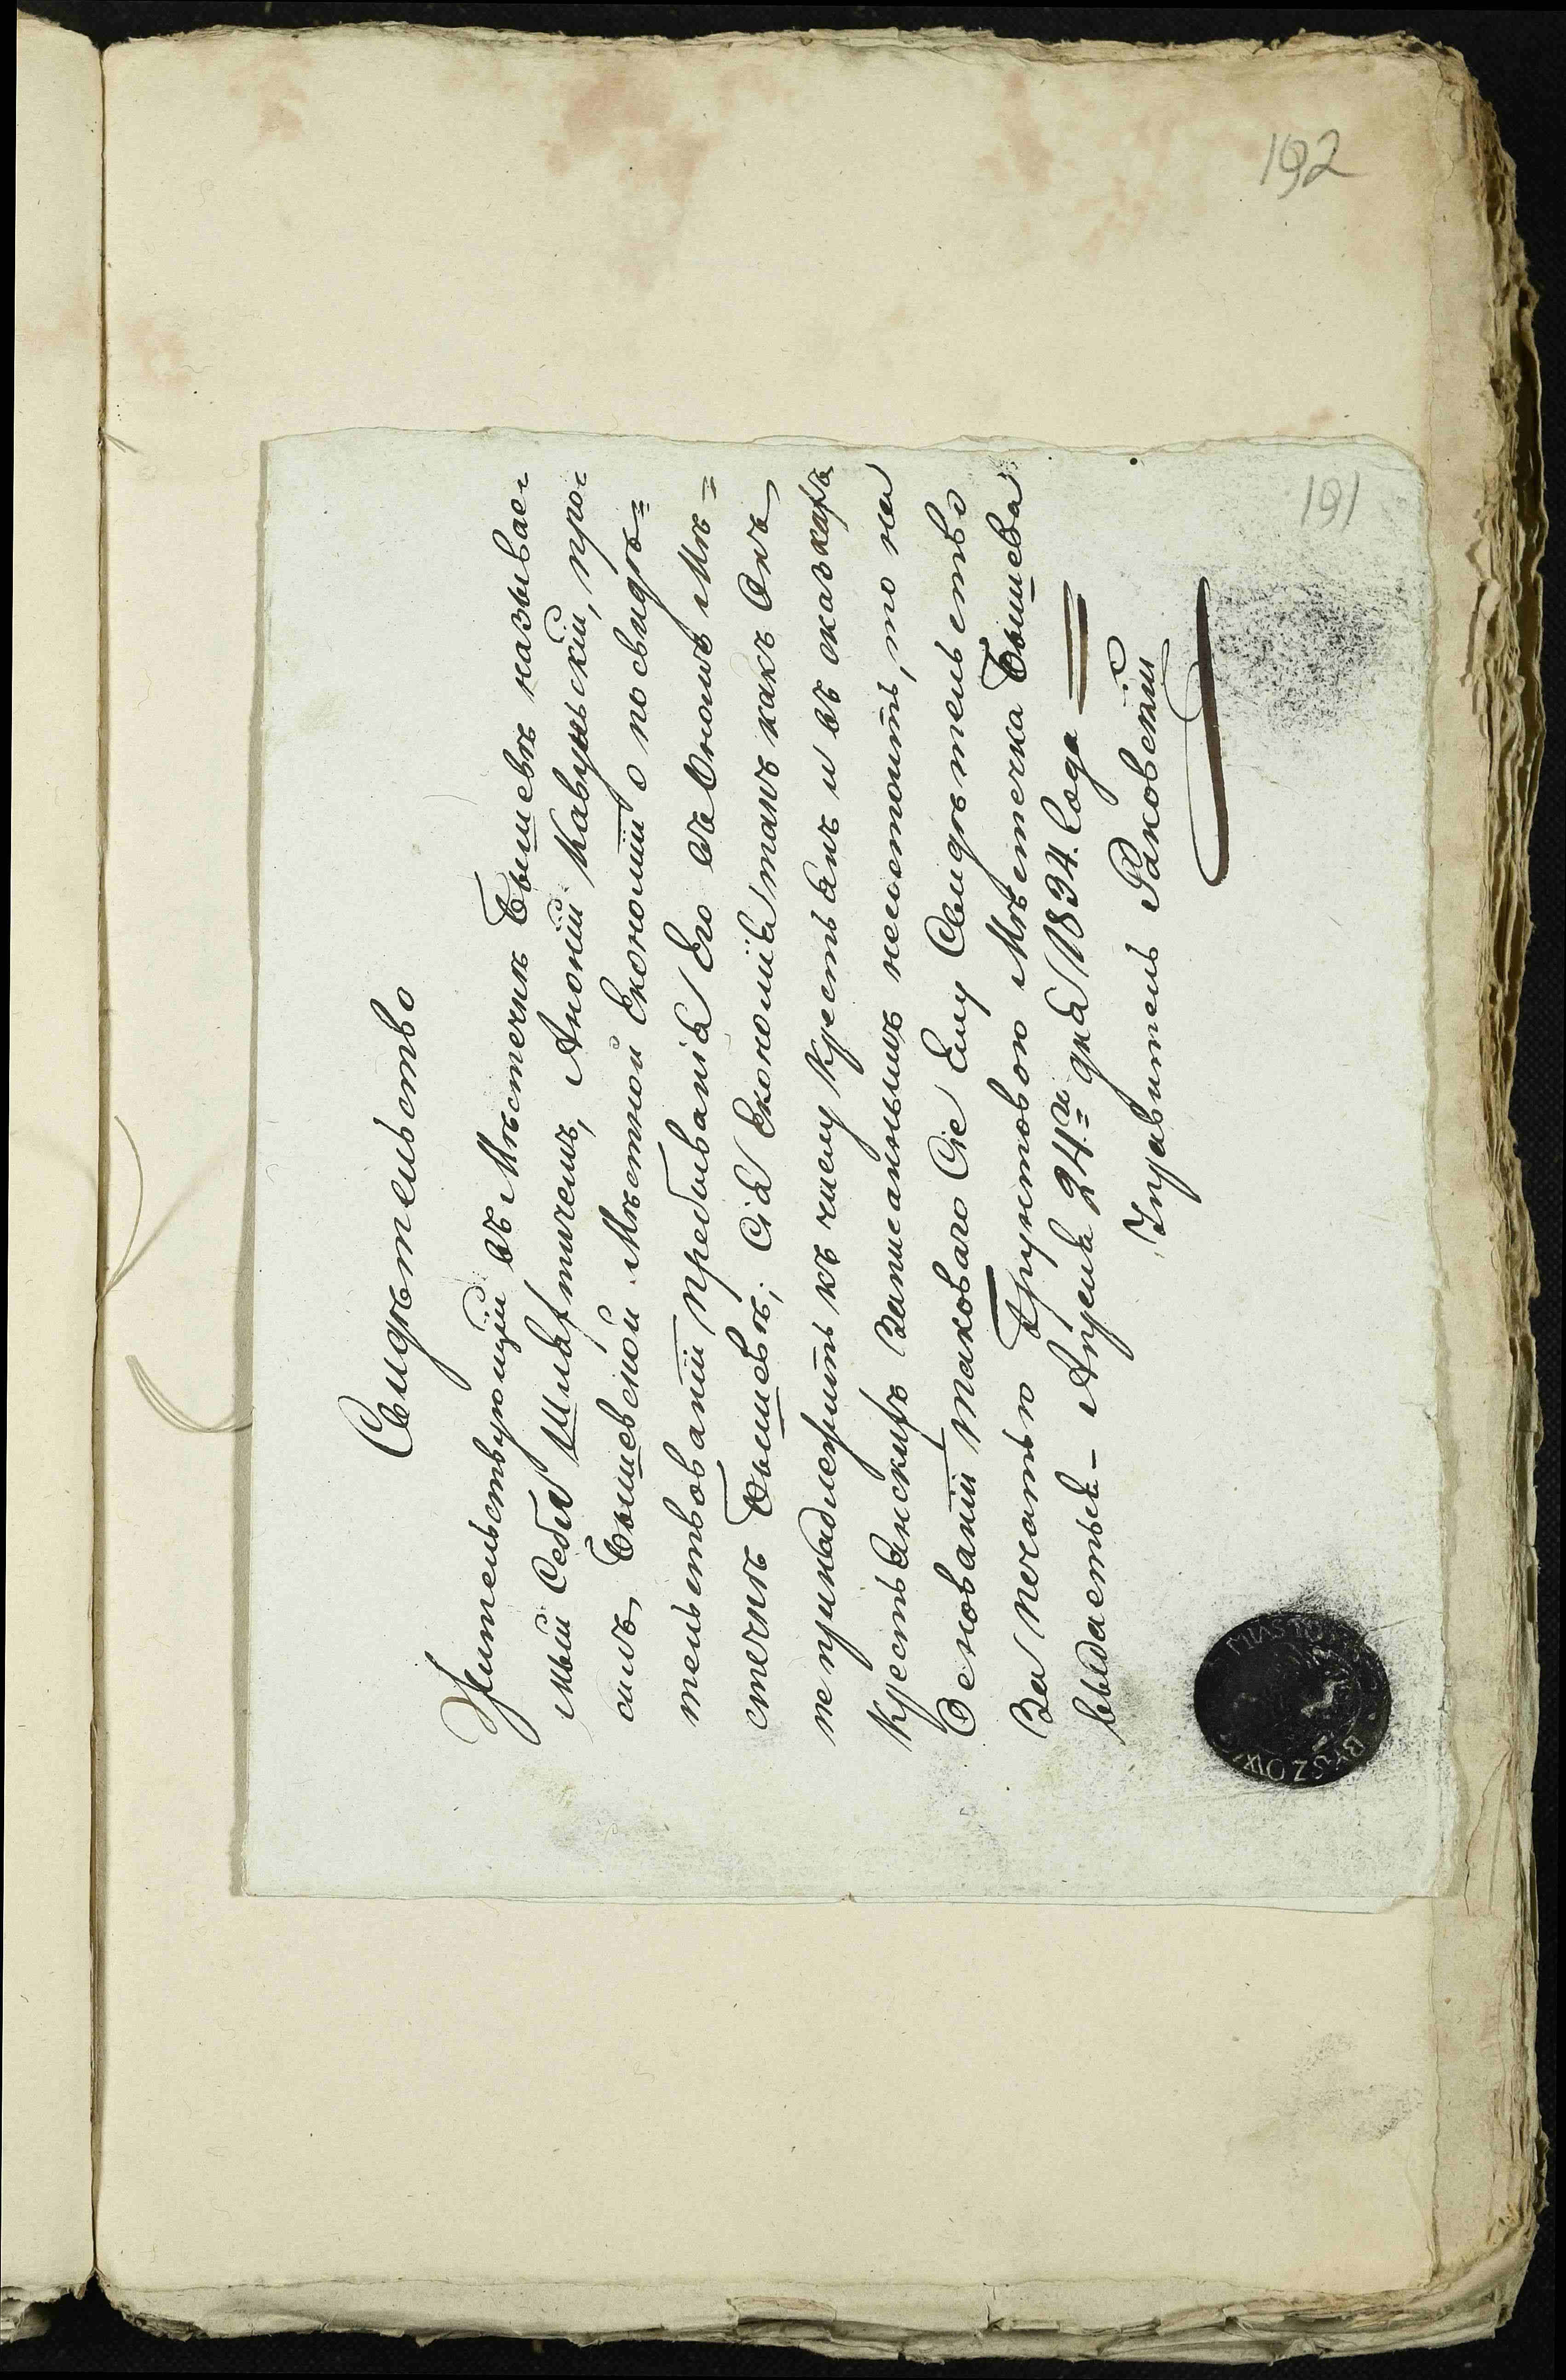 192
191
Свидѣтельство
Жительствующій въ Мѣстечкѣ Бышевѣ называе=
мый Себя Шляхтичемъ, Аноній Кавунскій, про=
силъ, Бышевской Мѣстной Економіи о посвидѣ=
тельствованіи пребыванія Его въ Ономъ Мѣ=
стечкѣ Бышевѣ; Сія Економія такъ какъ Онъ
не принадлежитъ къ числу крестьянъ и въ сказкахъ
крестьянскихъ Записаннымъ несостоитъ, то на
Основаніи таковаго Сіе Ему Свидѣтельство
За печатью Грунтовою Мѣстечка Бышева
выдаеться - Апреля 24го дня 1834. Года
Управитель Раковскій
MIASTO BYSZOW